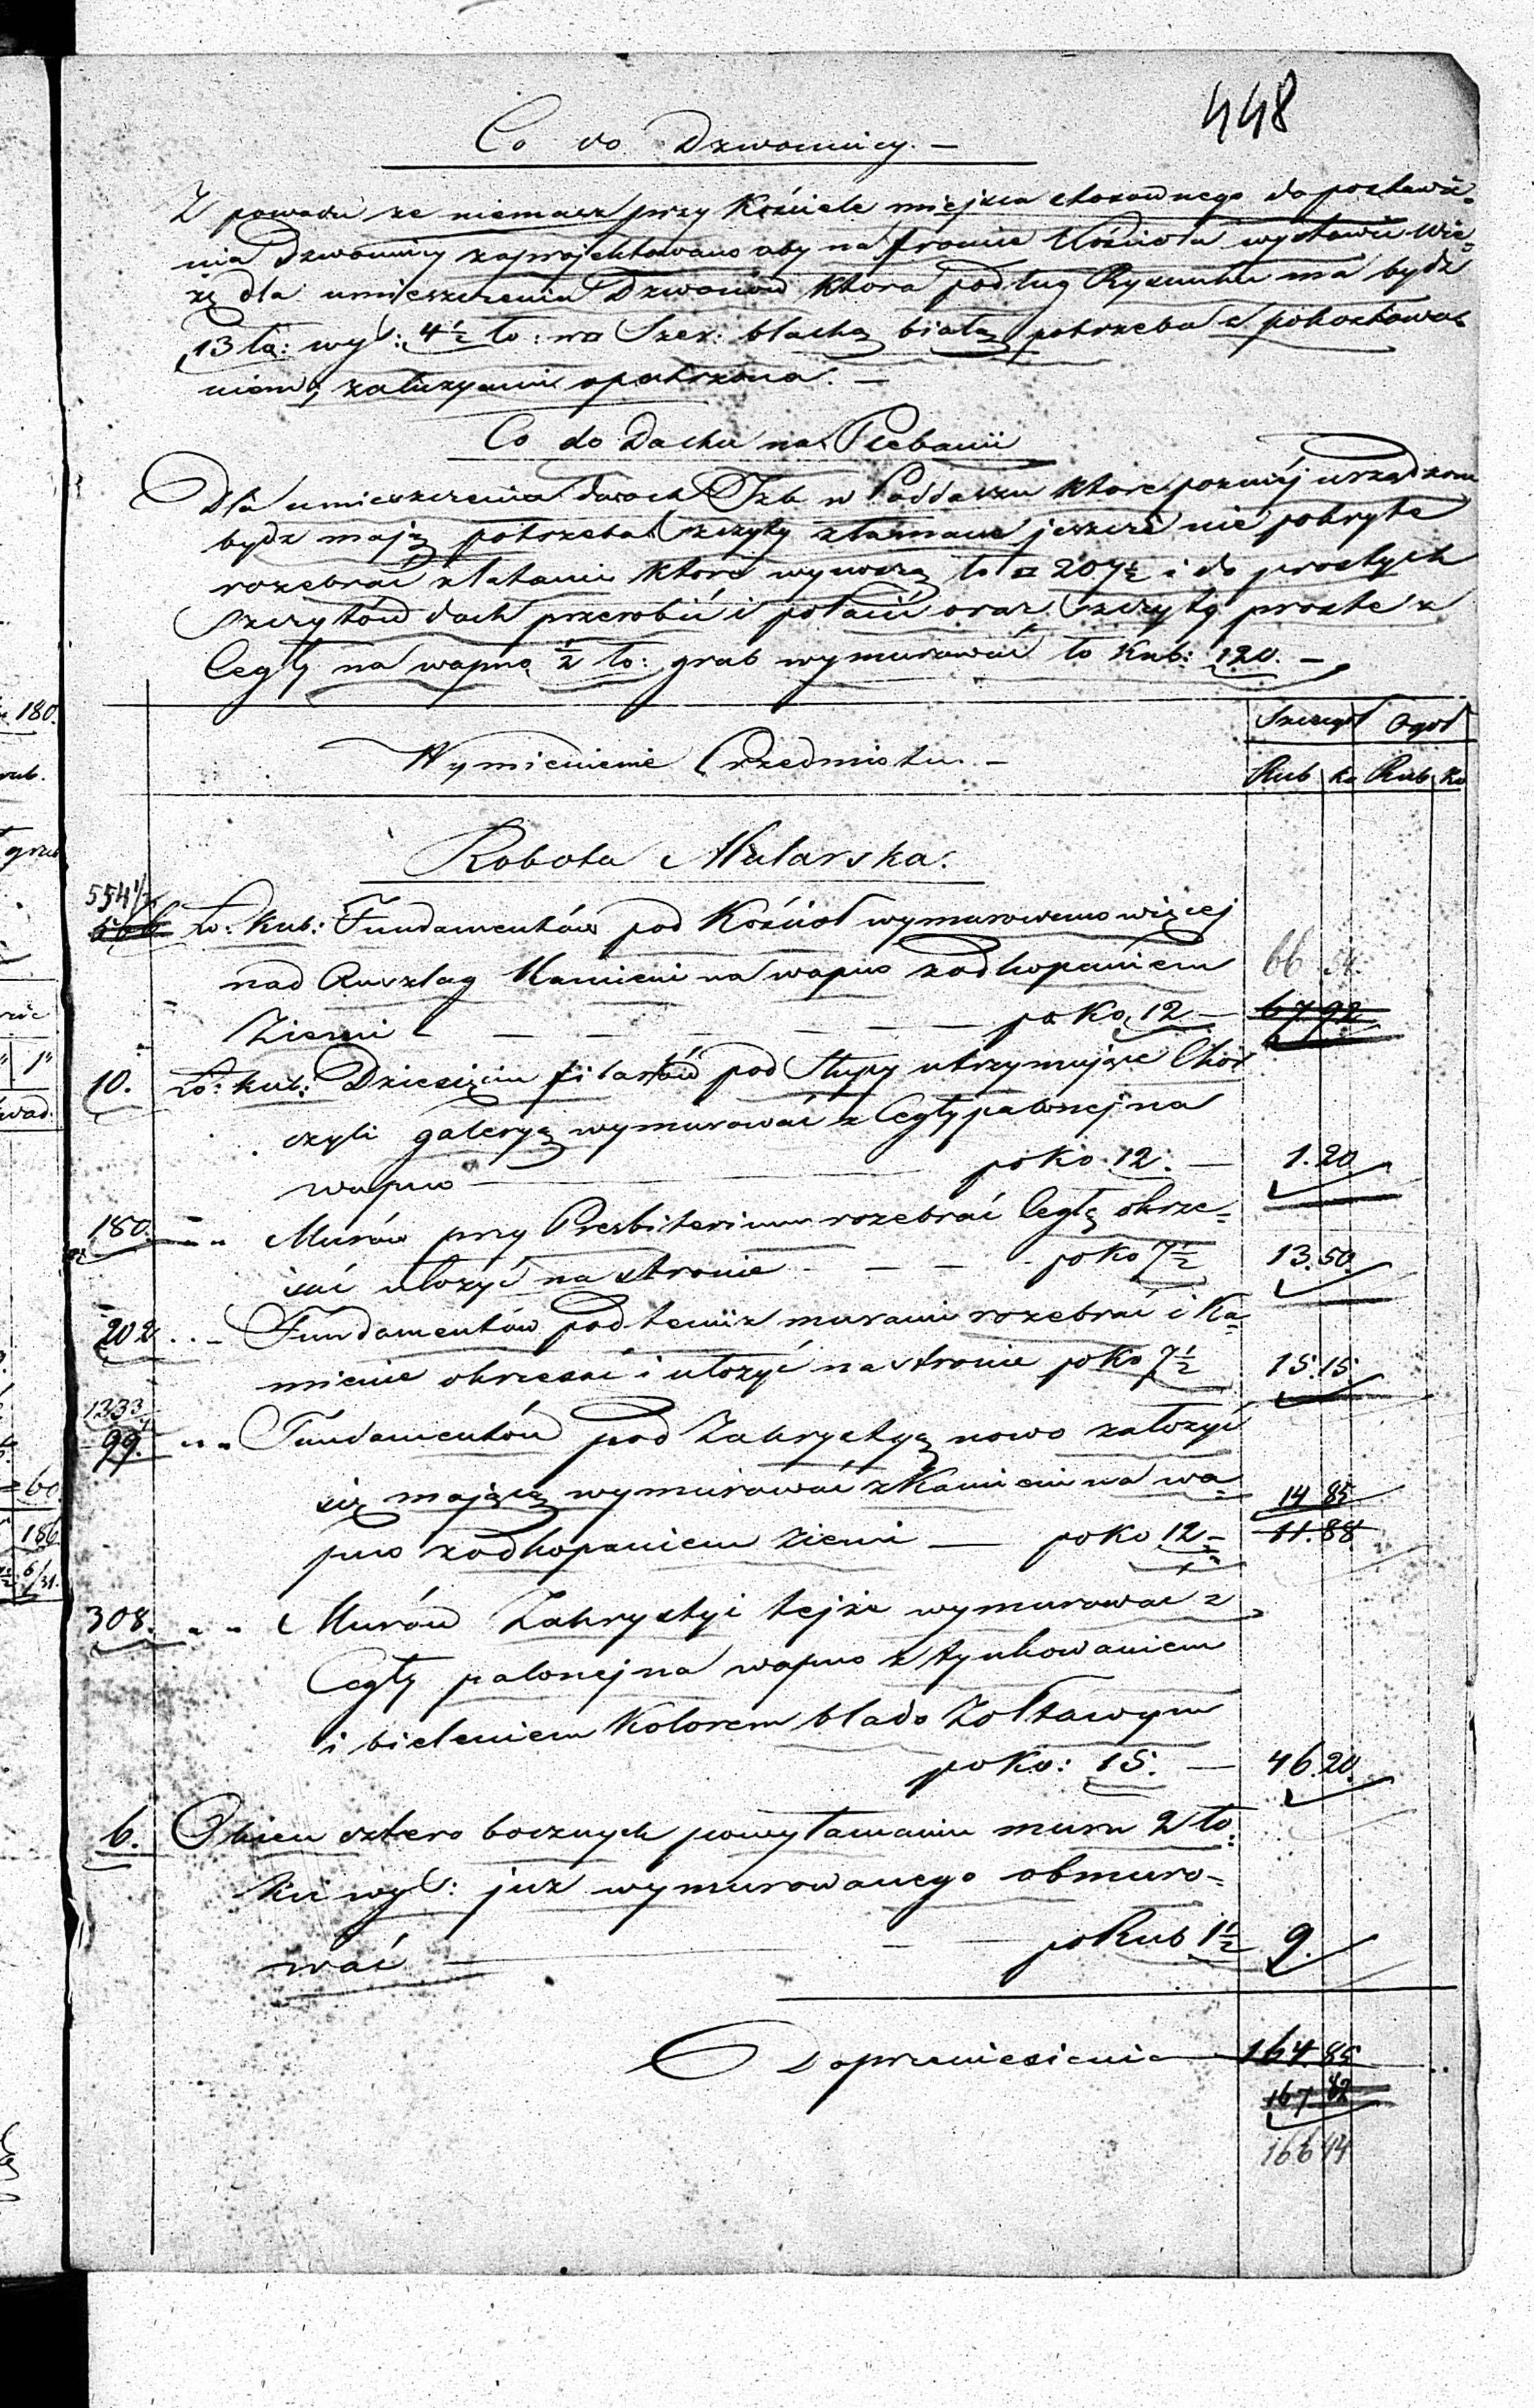 448
Co do Dzwonnicy. –
Z powodu ze niemasz przy Kościele miejsca stosownego do postawie=
nia Dzwonnicy zaprojektowano aby na froncie Kościoła wystawić Wie=
żę dla umieszczenia Dzwonów Która podług Rysunku ma bydź
13 ło: wys: 4½ ło: w □ Szer: blachą białą pobrzeba z pokostowa
niem żaluzyami opatrzona. –
Co do Dachu na Plebanii
Dla umieszczenia dwoch Izb w Poddaszu Ktore pozniéj urządzone
bydz mają potrzeba szczyty złamane jeszcze nie pobryte
rozebrać z łatami Ktore wynoszą ło □ 207½ i do prostych
Szczytów dach przerobić i połacić oraz szczyty proste z
Cegły na wapno ½ ło: grub wymurować ło Kub: 120. –
Szczegół Ogół
Wymienienie Przedmiotu. –
Rub ko Rub ko
Robota Mularska.
554½
566 ło: Kub: Fundamentów pod Kościoł wymurowano więcej
nad Anszlag Kamieni na wapno z odkopaniem 66 54.
Ziemi – – – – – – po Ko 12 – 67 92
10. ło: kub: Dziesięciu filarów pod Słupy utrzymujące Chór
czyli galeryą wymurować z Cegły palonej na
wapno – – po Ko. 12. – 1.20
180. " " Murów przy Presbiterium rozebrać Cegłę okrze=
sać ułożyć na stronie – – – po Ko 7½ 13.50.
202 . . – Fundamentów pod temiż murami rozebrać i Ka=
mienie okrzesać i ułożyć na stronie po Ko 7½ 15.15
1233
99. " " Fundamentów pod Zakrystyą nowo założyć
się mającą wymurować z Kamieni na wa= 14 85
pno z odkopaniem Ziemi — po Ko 12 – 11.88
308. " " Murów Zakrystyi tejże wymurować z
Cegły palonej na wapno z tynkowaniem
i bieleniem Kolorem blado Żołtawym
po Ko: 15. – 46.20.
6. Okien cztero bocznych po wyłamaniu muru 2 ło=
kci wys: już wymurowanego obmuro=
wać – – – po Rub 1½ 9.
Do przeniesienia 164 85
167 82
166 44